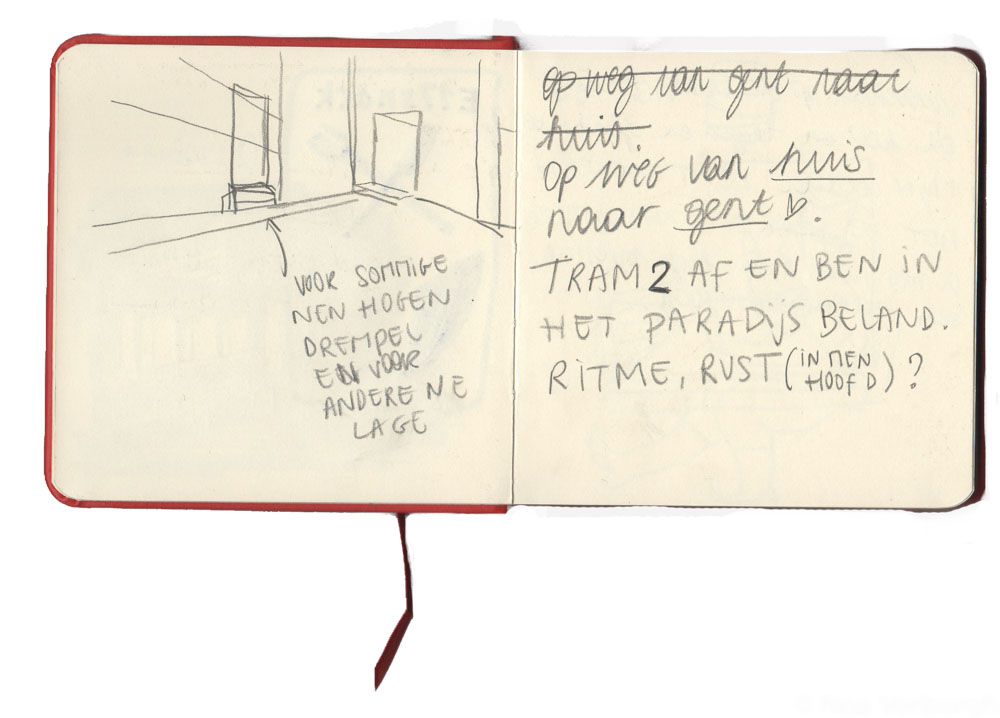 VOOR SOMMIGE
NEN HOGEN
DREMPEL
EN VOOR
ANDERE NE
LAGE
op weg van gent naar
huis.
op weg van huis
naar gent ♡.
TRAM 2 AF EN BEN IN
HET PARADIJS BELAND.
RITME, RUST (IN MEN
HOOFD) ?